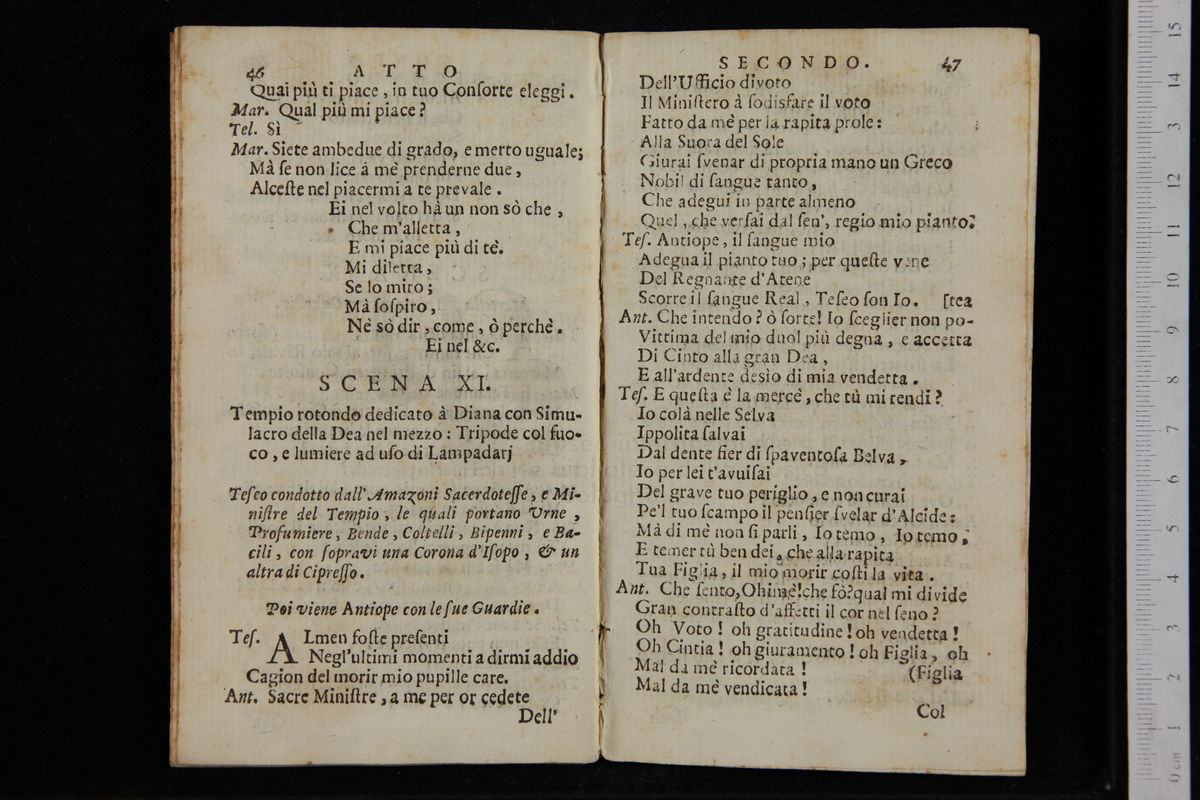 46 A T T O
Quai più ti piace, in tuo Conſorte eleggi.
Mar. Qual più mi piace?
Tel. Sì
Mar. Siete ambedue di grado, e merto uguale;
Mà ſe non lice à mè prenderne due,
Alceſte nel piacermi a te prevale.
Ei nel volto hà un non sò che,
Che m'alletta,
E mi piace più di tè.
Mi diletta,
Se lo miro;
Mà ſoſpiro,
Nè sò dir, come, ò perchè.
Ei nel &c.
S C E N A XI.
Tempio rotondo dedicato à Diana con Simu-
lacro della Dea nel mezzo: Tripode col fuo-
co, e lumiere ad uſo di Lampadarj
Teſeo condotto dall'Amazoni Sacerdoteſſe, e Mi-
niſtre del Tempio, le quali portano Vrne,
Profumiere, Bende, Coltelli, Bipenni, e Ba-
cili, con ſopravi una Corona d'Iſopo, & un
altra di Cipreſſo.
Poi viene Antiope con le ſue Guardie.
Teſ. ALmen foſte preſenti
Negl'ultimi momenti a dirmi addio
Cagion del morir mio pupille care.
Ant. Sacre Miniſtre, a me per or cedete
Dell'
S E C O N D O. 47
Dell'Ufficio divoto
Il Miniſtero à ſodisfare il voto
Fatto da mè per la rapita prole:
Alla Suora del Sole
Giurai ſvenar di propria mano un Greco
Nobil di ſangue tanto,
Che adegui in parte almeno
Quel, che verſai dal ſen', regio mio pianto:
Teſ. Antiope, il ſangue mio
Adegua il pianto tuo; per queſte vene
Del Regnante d'Atene
Scorre il ſangue Real, Teſeo ſon Io. [tea
Ant. Che intendo? ò ſorte! Io ſceglier non po-
Vittima del mio duol più degna, e accetta
Di Cinto alla gran Dea,
E all'ardente desìo di mia vendetta.
Teſ. E queſta è la mercè, che tù mi rendi?
Io colà nelle Selva
Ippolita ſalvai
Dal dente fier di ſpaventoſa Belva,
Io per lei t'avuiſai
Del grave tuo periglio, e non curai
Pe'l tuo ſcampo il penſier ſvelar d'Alcide:
Mà di mè non ſi parli, Io temo, Io temo,
E temer tù ben dei, che alla rapita
Tua Figlia, il mio morir coſti la vita.
Ant. Che ſento, Ohimè! che fò? qual mi divide
Gran contraſto d'affetti il cor nel ſeno?
Oh Voto! oh gratitudine! oh vendetta!
Oh Cintia! oh giuramento! oh Figlia, oh
Mal da mè ricordata! (Figlia
Mal da mè vendicata!
Col
0 cm 1 2 3 4 5 6 7 8 9 10 11 12 13 14 15